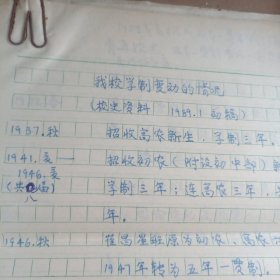 我校学制变动的情况
(校史资料 1989.1 初稿)
1937.秋 招收高农新生,学制三年。
1941.夏— 招收初农(附设初中部)新
1946.夏 学制三年;连高农三年,
(共 八 届) 年。
1946.秋 农、高农六
1947年转为五年一贯制。